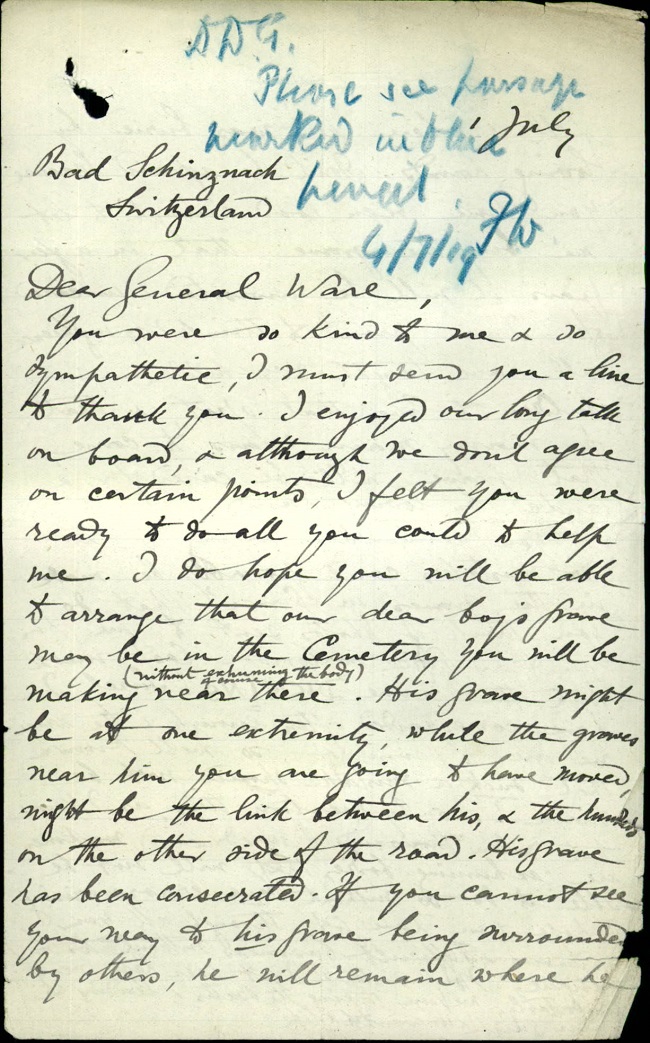 D.D.G.
Please see passage
marked in blue
pencil.
FW
4/7/19
1 July
Bad Schinznach
Switzerland
Dear General Ware,
You were so kind to me & so
sympathetic, I must send you a line
to thank you. I enjoyed our long talk
on board, & although we don't agree
on certain points, I felt you were
ready to do all you could to help
me. I do hope you will be able
to arrange that our dear boy's grave
may be in the Cemetery you will be
(without of course exhuming the body)
making near there. His grave might
be at one extremity, while the graves
near him you are going to have moved,
might be the link between his, & the hundreds
on the other side of the road. His grave
has been consecrated. If you cannot see
your way to his grave being surrounded
by others, he will remain where he